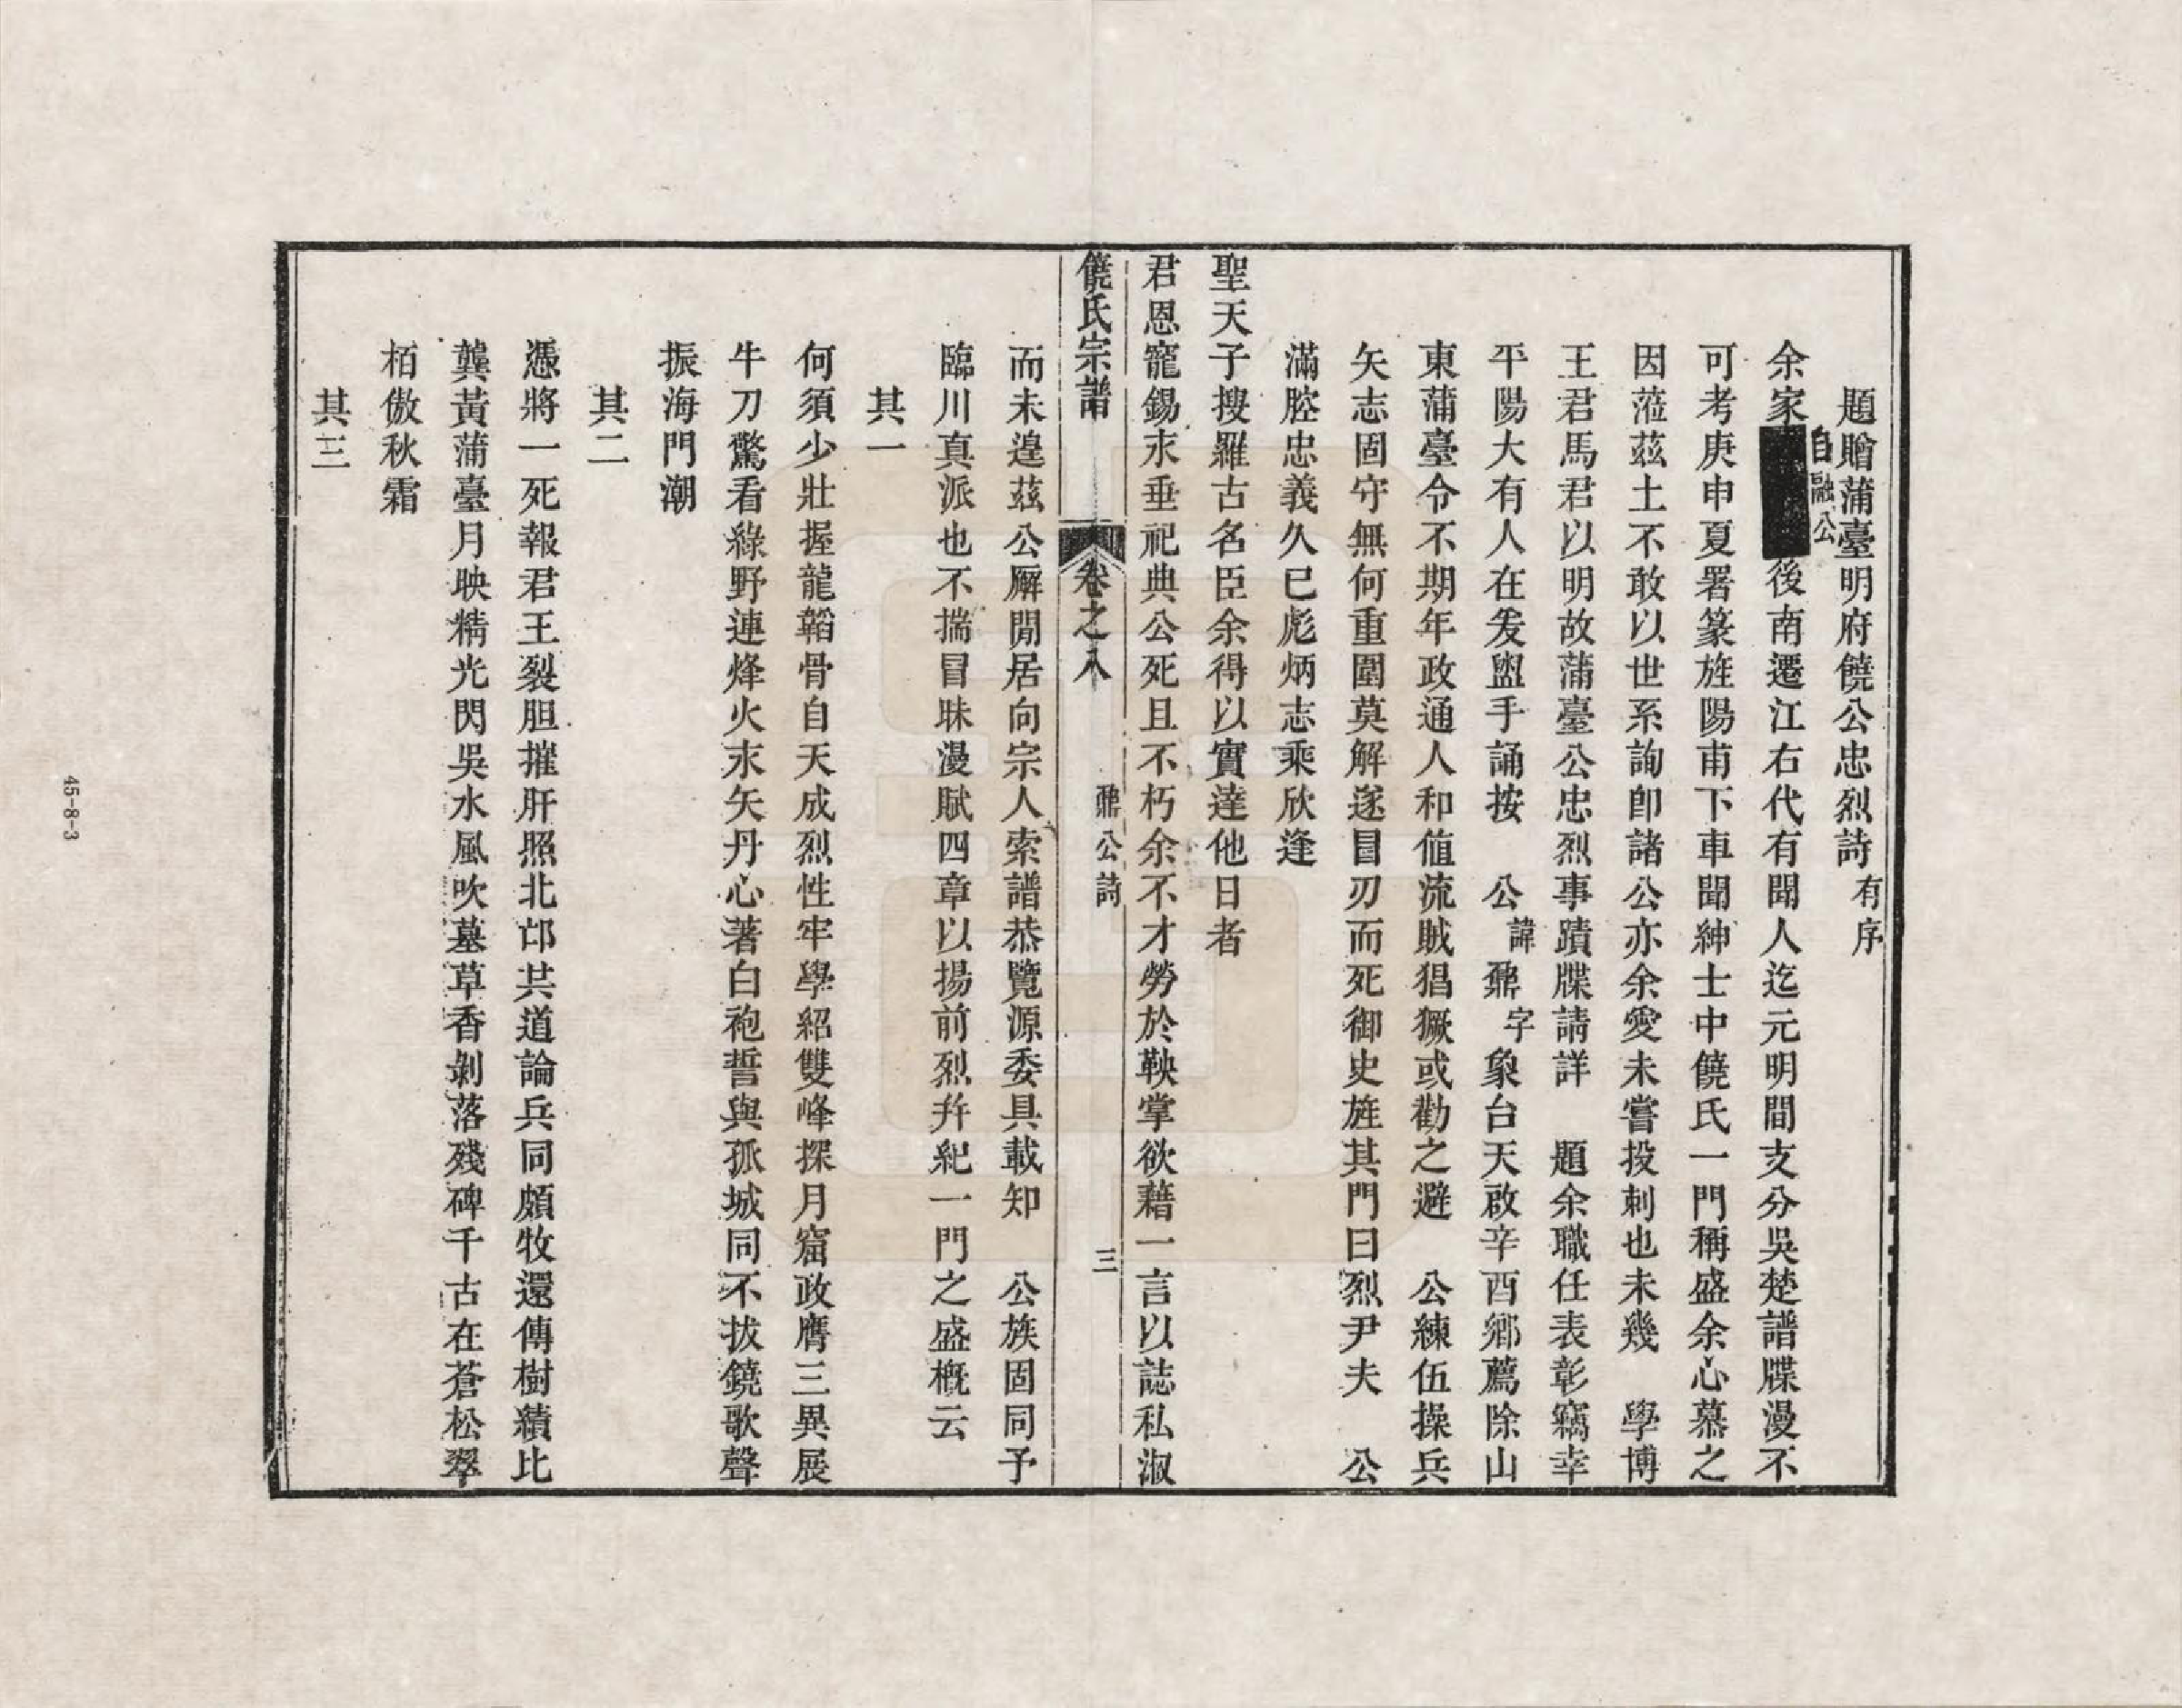 題贈蒲臺明府饒公忠烈詩有序
余家自融公後南遷江右代有聞人迄元明間支分吳楚譜牒漫不
可考庚申夏署篆旌陽甫下車聞紳士中饒氏一門稱盛余心慕之
因蒞茲土不敢以世系詢卽諸公亦余愛未嘗投刺也未幾　學博
王君馬君以明故蒲臺公忠烈事蹟牒請詳　題余職任表彰竊幸
平陽大有人在爰盥手誦按　公諱鼐字象台天啟辛酉鄉薦除山
東蒲臺令不期年政通人和値流賊猖獗或勸之避　公練伍操兵
矢志固守無何重圍莫解遂冒刃而死御史旌其門曰烈尹夫　公
滿腔忠義久已彪炳志乘欣逢
聖天子搜羅古名臣余得以實達他日者
君恩寵錫永垂祀典公死且不朽余不才勞於鞅掌欲藉一言以誌私淑
饒氏宗譜　卷之八　鼐公詩　三
而未遑茲公廨閒居向宗人索譜恭覽源委具載知　公族固同予
臨川真派也不揣冒昧漫賦四章以揚前烈幷紀一門之盛概云
其一
何須少壯握龍韜骨自天成烈性牢學紹雙峰探月窟政膺三異展
牛刀驚看綠野連烽火永矢丹心著白袍誓與孤城同不拔鐃歌聲
振海門潮
其二
憑將一死報君王裂胆摧肝照北邙共道論兵同頗牧還傳樹績比
龔黃蒲臺月映精光閃吳水風吹墓草香剝落殘碑千古在蒼松翠
栢傲秋霜
其三
45-8-3